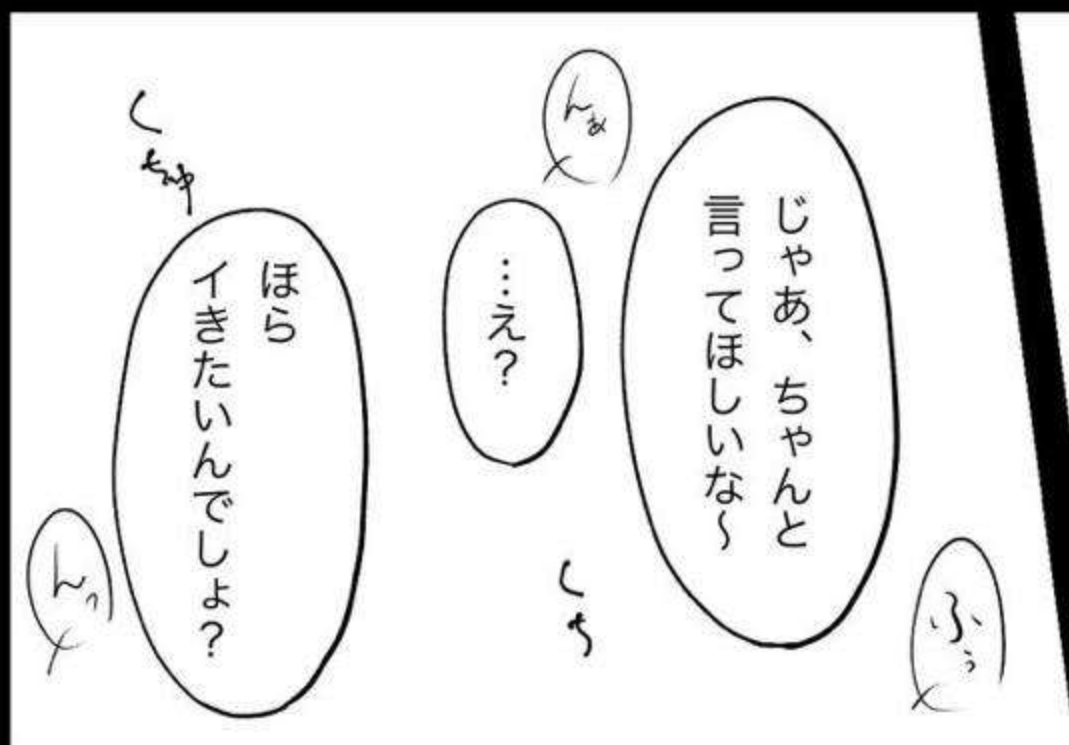 ふぅ
じゃあ、ちゃんと
言ってほしいな～
んぁ
…え？
くち
くちゅ
ほら
イきたいんでしょ？
んっ